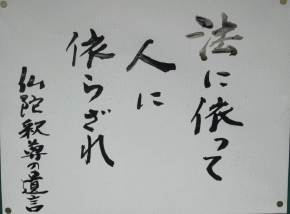 法に依って
人に
依らざれ
仏陀釈尊の遺言